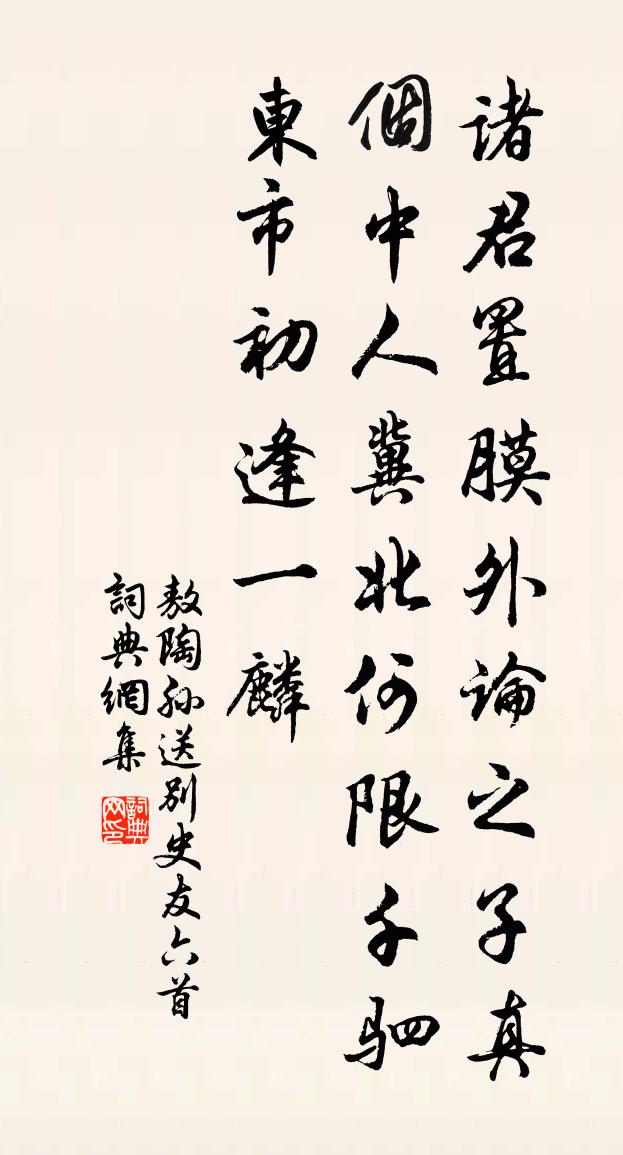 諸君置膜外論之子真
個中人冀北何限千驷
東市初逢一麟
敖陶孙送別史友六首
詞典網集
詞典
网印